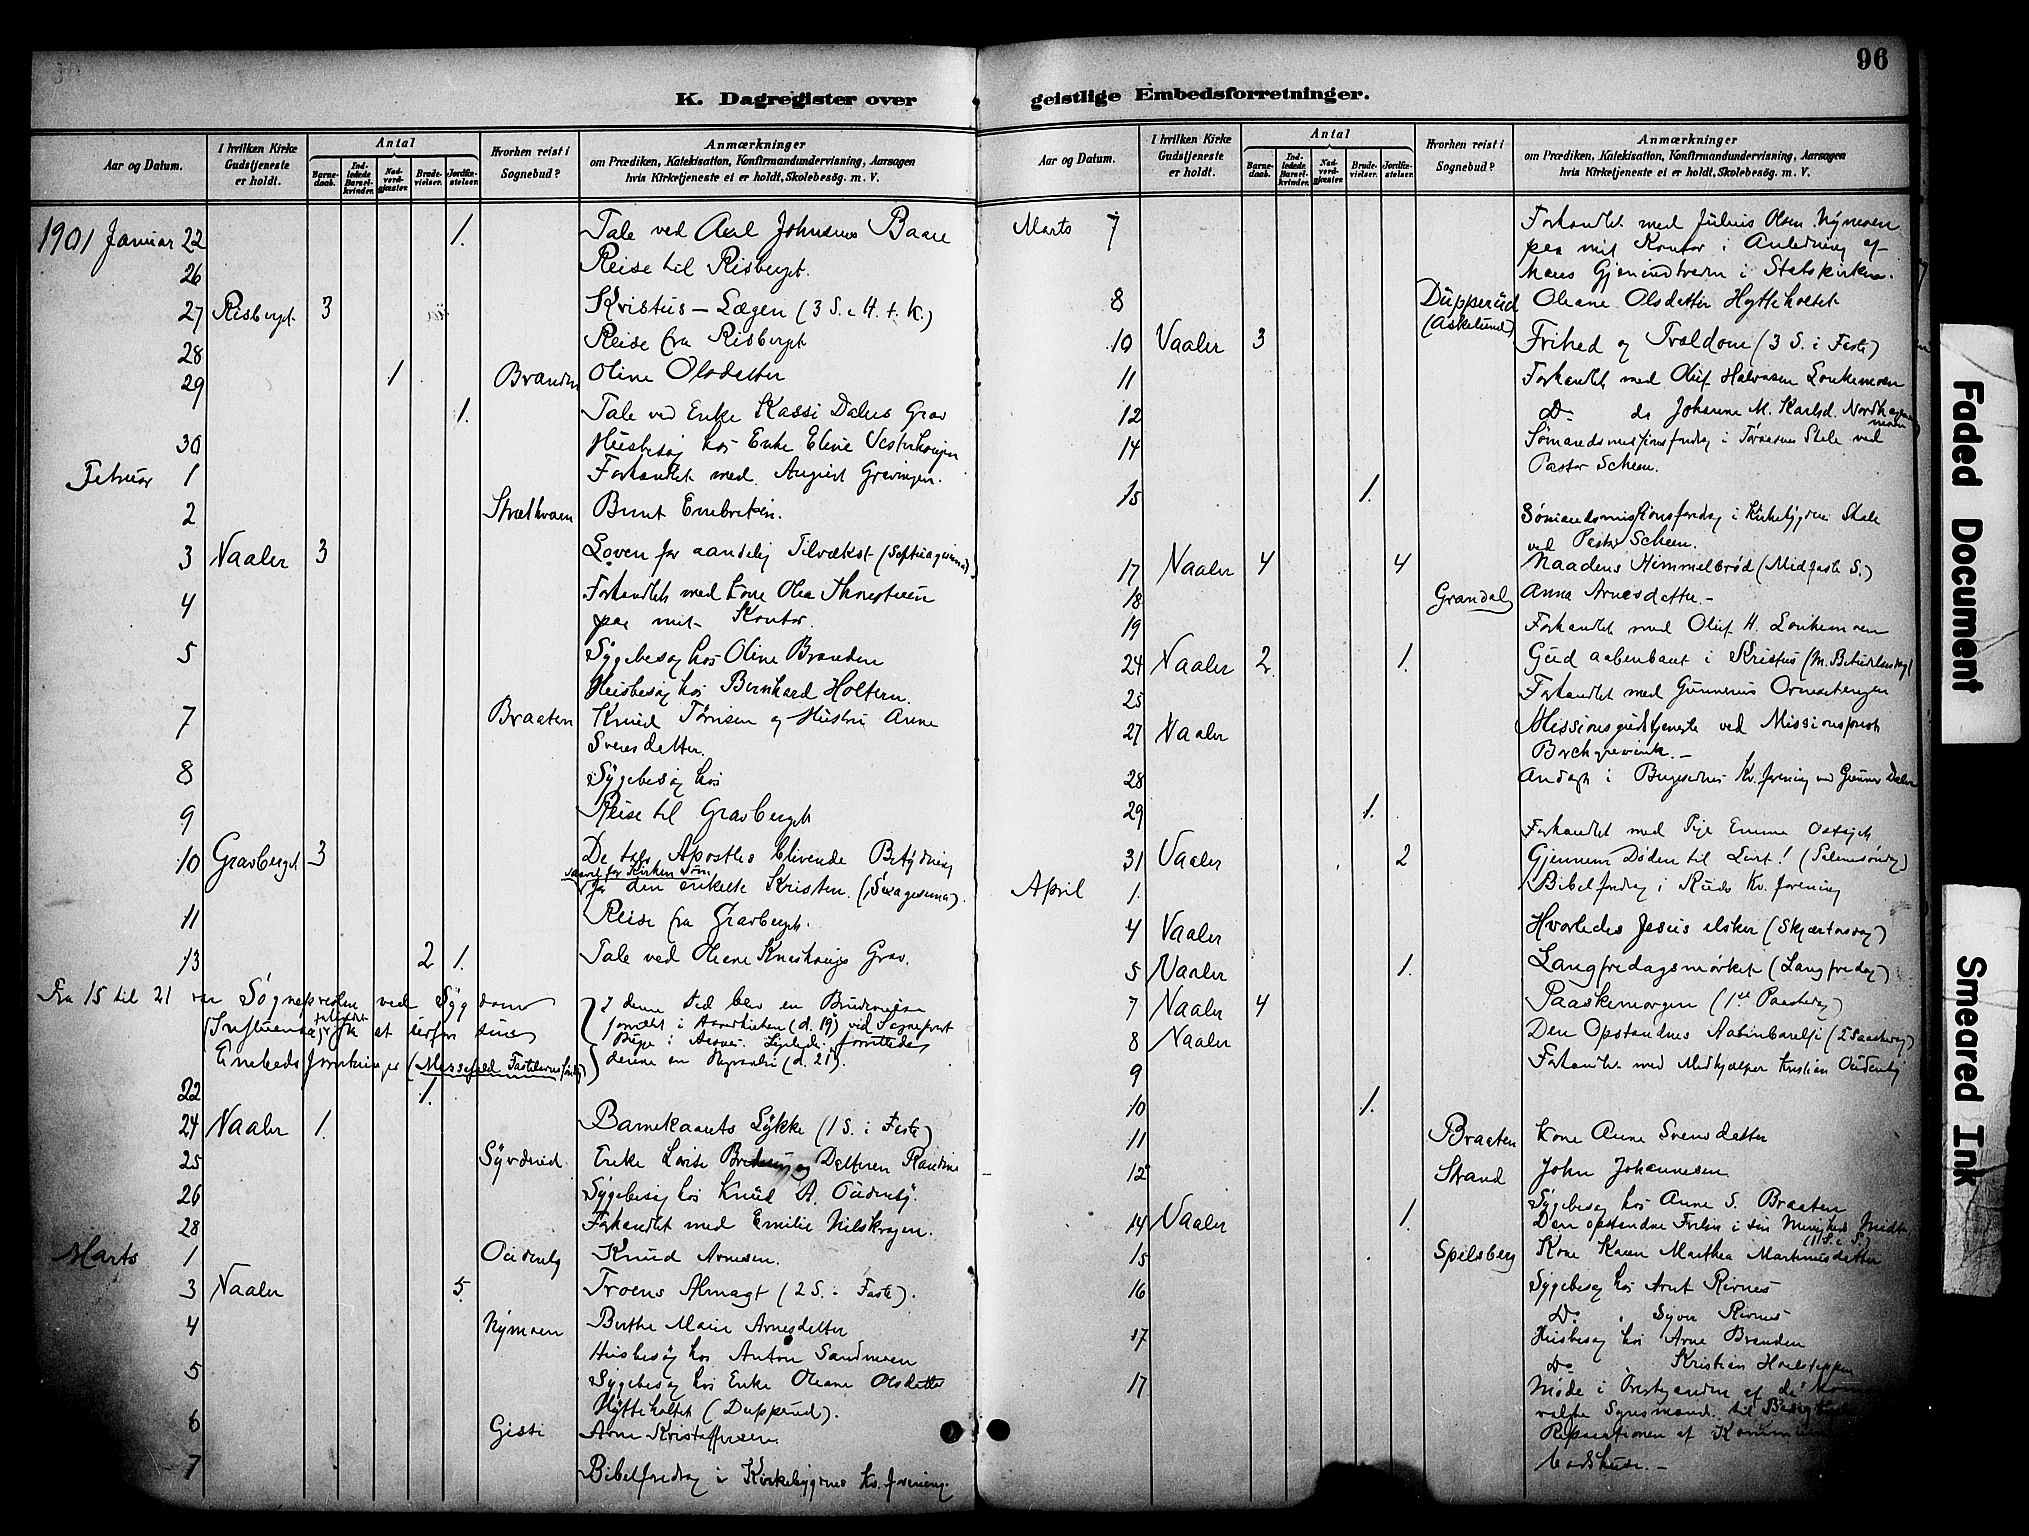 96
K. Dagregister over geistlige Embedsforretninger.
Aar og Datum.
I hvilken Kirke Gudstjeneste er holdt.
Antal
Barnedaab.
Indledede Barselkvinder.
Nadverdgjæster.
Brudevielser.
Jordfæstelser.
Hvorhen reist i Sognebud?
Anmærkninger
om Prædiken, Katekisation, Konfirmandundervisning, Aarsagen
hvis Kirketjeneste ei er holdt, Skolebesøg. m. V.
1901 Januar 22 1. Tale ved Axel Johnsens Baare
26 Reise til Risberget.
27 Risberget 3 Kristus – Lægen (3 S. e. H. t. K.)
28 Reise fra Risberget
29 1 Branden Oline Olsdatter
1. Tale ved Enke Kassi Dahls Grav
30 Husbesøg hos Enke Eline
Februar 1 Forhandlet med August
2 Bernt Embretsen.
3 Vaaler 3 Loven for aandelig Tilvækst (Septuagesima)
4 Forhandlet med Kone Olea Thorstensen
paa mit Kontor.
5 Sygebesøg hos Oline Branden
Husbesøg hos Bernhard Holtern.
7 Braaten Knud Tørrisen og Hustru Anne
Svensdatter.
8 Sygebesøg hos
9 Reise til Gravberget
10 Gravberget 3 De tolv Apostles blivende Betydning
saavel for Kirken som
for den enkelte Kristen. (Sexagesima).
11 Reise fra Gravberget.
13 2 1. Tale ved Oleane Grav.
Fra 15 til 21 var Sognepresten ved Sygdom
(Influenza) forhindret fra at udføre sine
Embedsforretninger (Messefald Fastelavnssøndag)
I denne Tid blev en Brudevielse
forrettet i (d. 19) ved Sognepræst
i Aasnes. Ligeledes forrettedes
denne en (d. 21).
22 1.
24 Vaaler 1. Barnekaarets Lykke (1 S. i Faste)
25 Enke Lovise og Datteren Randine
26 Sygebesøg hos Knud A. Oudenby.
28 Forhandlet med Emilie Nilskogen.
Marts 1 Oudenby Knud Arnesen.
3 Vaaler 5. Troens Almagt (2 S. i Faste).
4 Nymoen Berthe Marie Arnesdatter
Husbesøg hos Anton Sandmoen
5 Sygebesøg hos Enke Oleane Olsdatter
Hytteholtet (Dupperud).
6 Gisti Arne Kristoffersen
7 Bibelforedrag i Kirkebygdens Kv. forening.
Aar og Datum.
I hvilken Kirke Gudstjeneste er holdt.
Antal
Barnedaab.
Indledede Barselkvinder.
Nadverdgjæster.
Brudevielser.
Jordfæstelser.
Hvorhen reist i Sognebud?
Anmærkninger
om Prædiken, Katekisation, Konfirmandundervisning, Aarsagen
hvis Kirketjeneste ei er holdt, Skolebesøg. m. V.
Marts 7 Forhandlet med Julius Olsen Nymoen
paa mit Kontor i Anledning af
hans Gjenindtræden i Statskirken.
8 Dupperud Oleane Olsdatter Hytteholtet
(Askelund)
10 Vaaler 3 Frihed og Trældom (3 S. i Faste)
11 Forhandlet med Oluf Halvorsen Loukemoen
12 Do do Johanne M. Karlsd. Nordhagen
moen
14 Sømandsmissionsforedrag i Skole ved
Pastor Scheen.
15 1.
Sømandsmissionsforedrag i Kirkebygdens Skole
ved Pastor Scheen.
17 Vaaler 4 4 Naadens Himmelbrød (Midfaste S.)
18 Grandalen Anna Arnesdatter. –
19 Forhandlet med Oluf H. Loukemoen
24 Vaaler 2 1. Gud aabenbaret i Kristus (M. Budskabsdag)
25 Forhandlet med Gunnerius
27 Vaaler Missionsgudstjeneste ved Missionsprest
Borchgrevink. –
28 Andagt i Kv. forening ved Gunnar Dalen
29 1.
Forhandlet med Pige Emma
31 Vaaler 2 Gjennem Døden til Livet! (Palmesøndag)
April 1. Bibelforedrag i Ruds Kv. forening
4 Vaaler Hvorledes Jesus elsker (Skjærtorsdag)
5 Vaaler 1. Langfredagsmørket (Langfredag)
7 Vaaler 4 Paaskemorgen (1ste Paaskedag)
8 Vaaler Den Opstandnes Aabenbarelse (2 Paaskedag)
9 Forhandlet med Medhjælper Kristian Oudenby
10 1.
11 Braaten Kone Anne Svensdatter
12 Strand John Johannesen
Sygebesøg hos Anne S. Braaten
14 Vaaler 1. Den opstandne Frelser i sin Menigheds Midte
(1 S. e. P.)
15 Spilsberg Kone Karen Marthea Martinusdatter
16 Sygebesøg hos Arnt Rernes
Do " Syver Rernes
17 Husbesøg hos Arne Branden
Do Kristian
17 Møde i af de
valgte Synsmænd til
Reparationen af